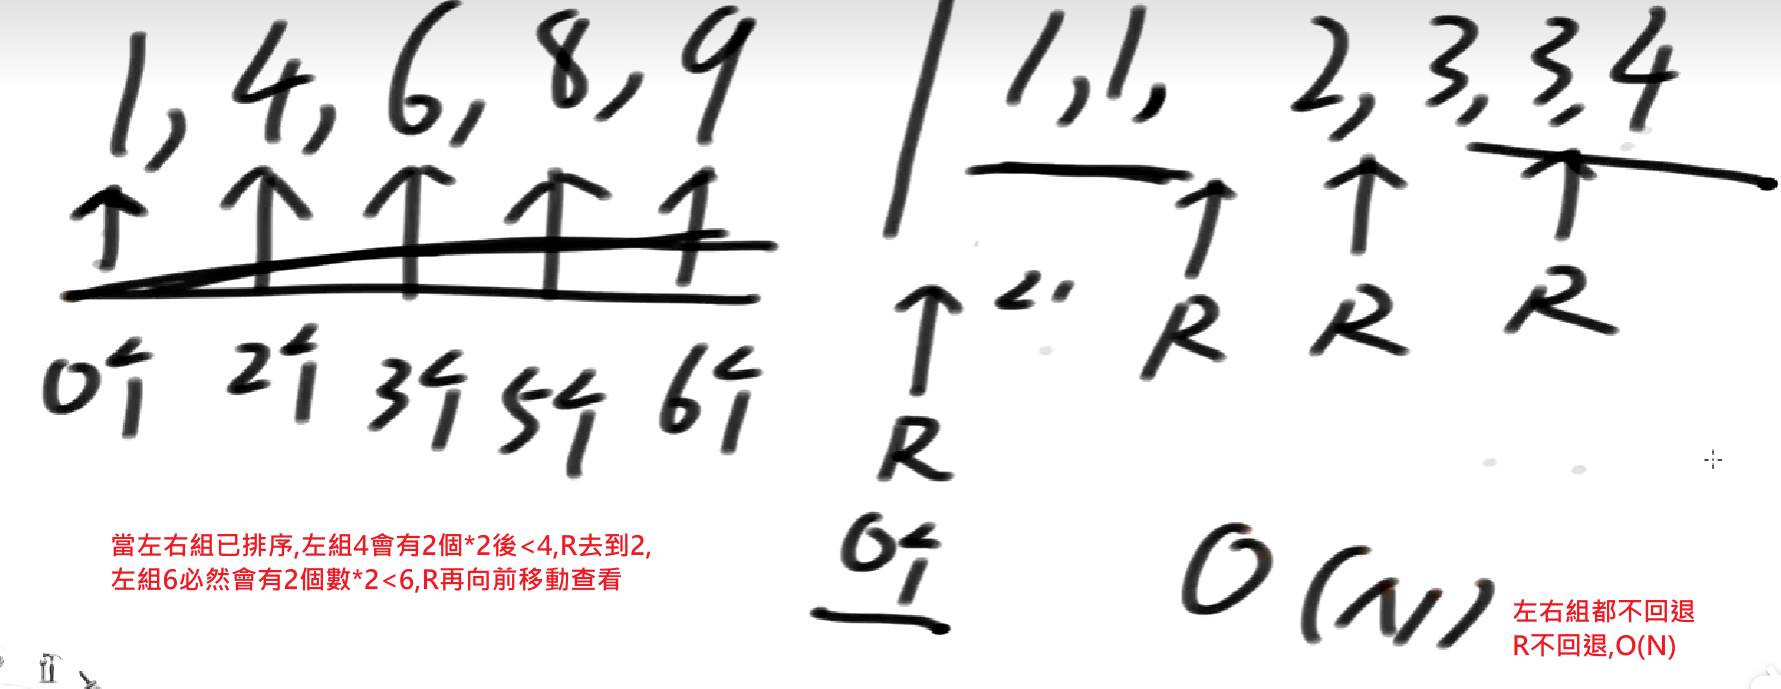 1, 4, 6, 8, 9 / 1, 1, 2, 3, 3, 4
0个 2个 3个 5个 6个
R R R
R
0个
O(N)
當左右組已排序,左組4會有2個*2後<4,R去到2,
左組6必然會有2個數*2<6,R再向前移動查看
左右組都不回退
R不回退,O(N)